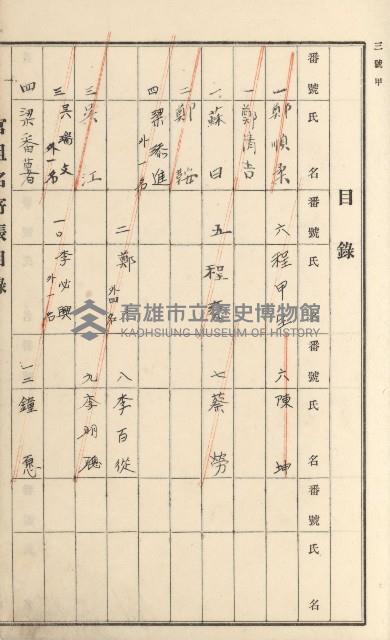 三號甲
目錄
番號 氏名 番號 氏名 番號 氏名 番號 氏名
一 鄭順柔 六 程甲 六 陳坤
一 鄭清吉
一 蘇日 五 程 七 蔡勞
二 鄭
四 梁 進 外一名
二 鄭 外四名 八 李百從
三 吳江 九 李明聰
三 吳瑞文 外一名 一〇 李必興 外一名
四 梁番薯 一二 鐘
官租名寄帳目錄
高雄市立歷史博物館
KAOHSIUNG MUSEUM OF HISTORY